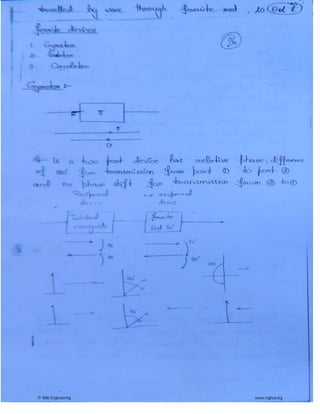 travelled by wave through ferrite rod
ferrite devices
1. Gyrator
2. Isolator
3. Circulator
26
Gyrator :-
π
π
0
It is a two port device has relative phase difference
of 180° for transmission from port ① to port ②
and no phase shift for transmission from ② to ①.
Reciprocal device
non reciprocal device
Twisted waveguide
ferrite
90°
90°
© Skill Engineering
www.raghul.org